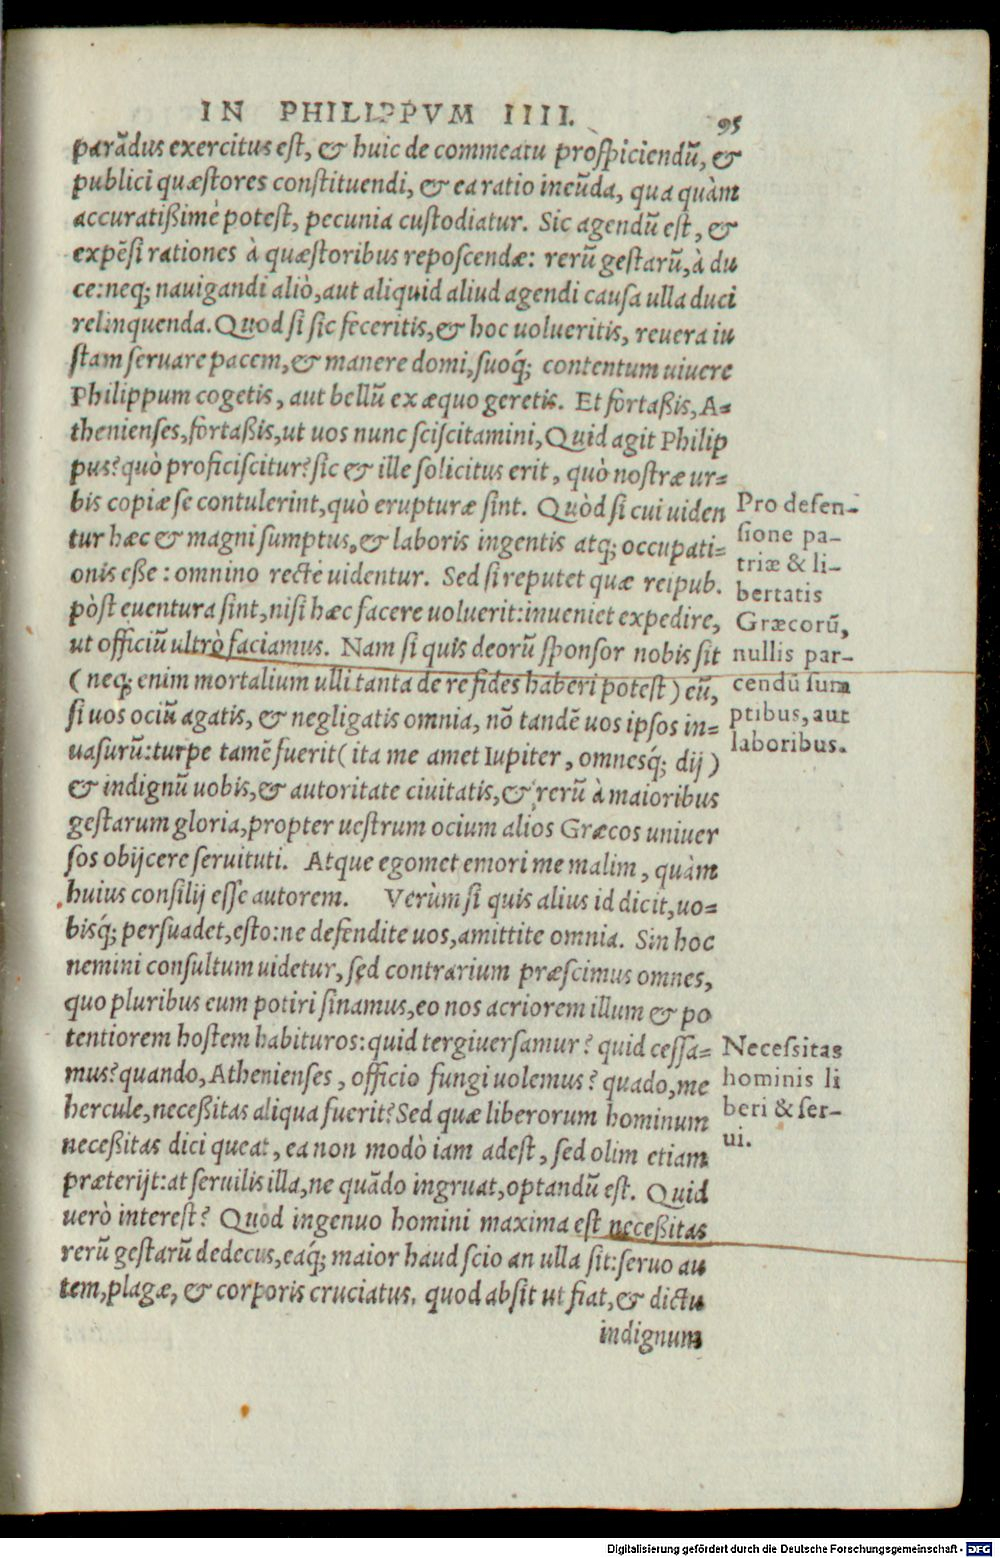 IN PHILIPPVM IIII.
95
parãdus exercitus est, & huic de commeatu prospiciendũ, &
publici quæstores constituendi, & ea ratio ineũda, qua quàm
accuratißimè potest, pecunia custodiatur. Sic agendũ est, &
expẽsi rationes à quæstoribus reposcendæ: rerũ gestarũ, à du
ce: neq; nauigandi aliò, aut aliquid aliud agendi causa ulla duci
relinquenda. Quod si sic feceritis, & hoc uolueritis, reuera iu
stam seruare pacem, & manere domi, suoq́; contentum uiuere
Philippum cogetis, aut bellũ ex æquo geretis. Et fortaßis, A=
thenienses, fortaßis, ut uos nunc sciscitamini, Quid agit Philip
pus? quò proficiscitur? sic & ille solicitus erit, quò nostræ ur=
bis copiæ se contulerint, quò erupturæ sint. Quòd si cui uiden
tur hæc & magni sumptus, & laboris ingentis atq; occupati=
onis eße: omnino rectè uidentur. Sed si reputet quæ reipub.
pòst euentura sint, nisi hæc facere uoluerit: inueniet expedire,
ut officiũ ultrò faciamus. Nam si quis deorũ sponsor nobis sit
(neq; enim mortalium ulli tanta de re fides haberi potest) eũ,
si uos ociũ agatis, & negligatis omnia, nõ tandẽ uos ipsos in=
uasurũ: turpe tamẽ fuerit (ita me amet Iupiter, omnesq́; dij)
& indignũ uobis, & autoritate ciuitatis, & rerũ à maioribus
gestarum gloria, propter uestrum ocium alios Græcos uniuer
sos obijcere seruituti. Atque egomet emori me malim, quàm
huius consilij esse autorem. Verùm si quis alius id dicit, uo=
bisq́; persuadet, esto: ne defendite uos, amittite omnia. Sin hoc
nemini consultum uidetur, sed contrarium præscimus omnes,
quo pluribus eum potiri sinamus, eo nos acriorem illum & po
tentiorem hostem habituros: quid tergiuersamur? quid cessa=
mus? quando, Athenienses, officio fungi uolemus? quãdo, me
hercule, neceßitas aliqua fuerit? Sed quæ liberorum hominum
neceßitas dici queat, ea non modò iam adest, sed olim etiam
præterijt: at seruilis illa, ne quãdo ingruat, optandũ est. Quid
uerò interest? Quòd ingenuo homini maxima est neceßitas
rerũ gestarũ dedecus, eaq́; maior haud scio an ulla sit: seruo au
tem, plagæ, & corporis cruciatus. quod absit ut fiat, & dictu
indignum
Pro defen-
sione pa-
triæ & li-
bertatis
Græcorũ,
nullis par-
cendũ sum
ptibus, aut
laboribus.
Necessitas
hominis li
beri & ser-
ui.
Digitalisierung gefördert durch die Deutsche Forschungsgemeinschaft - DFG